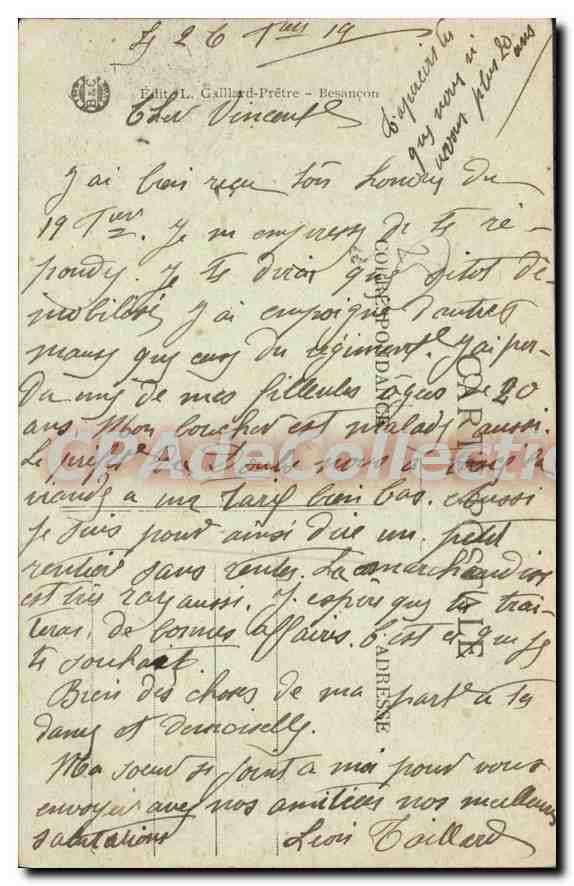 Le 26 7bre 19
B&C
Édit. L. Gaillard-Prêtre - Besançon
Cher Vincent
J'aperçois les
que vous ni
verrez plus 20 ans
J'ai bien reçu ton du
19 7bre. Je m'empresse de te ré-
pondre. Je te dirai que sitôt dé-
mobilisé j'ai empoigné d'autres
maux que ceux du régiment. J'ai per-
du une de mes filleules âgée de 20
ans. Mon boucher est malade aussi.
Le préfet du Doubs nous a taxé la
viande a un tarif bien bas. Aussi
je suis pour ainsi dire un petit
rentier sans rentes. La marchandise
est très rare aussi. J'espère que tu trai-
teras de bonnes affaires. C'est ce que je
te souhaite.
Bien des choses de ma part à ta
dame et demoiselle.
Ma soeur se joint a moi pour vous
envoyer avec nos amitiés nos meilleures
salutations Léon Taillard
CARTE POSTALE
CORRESPONDANCE
ADRESSE
CPAdeCollection